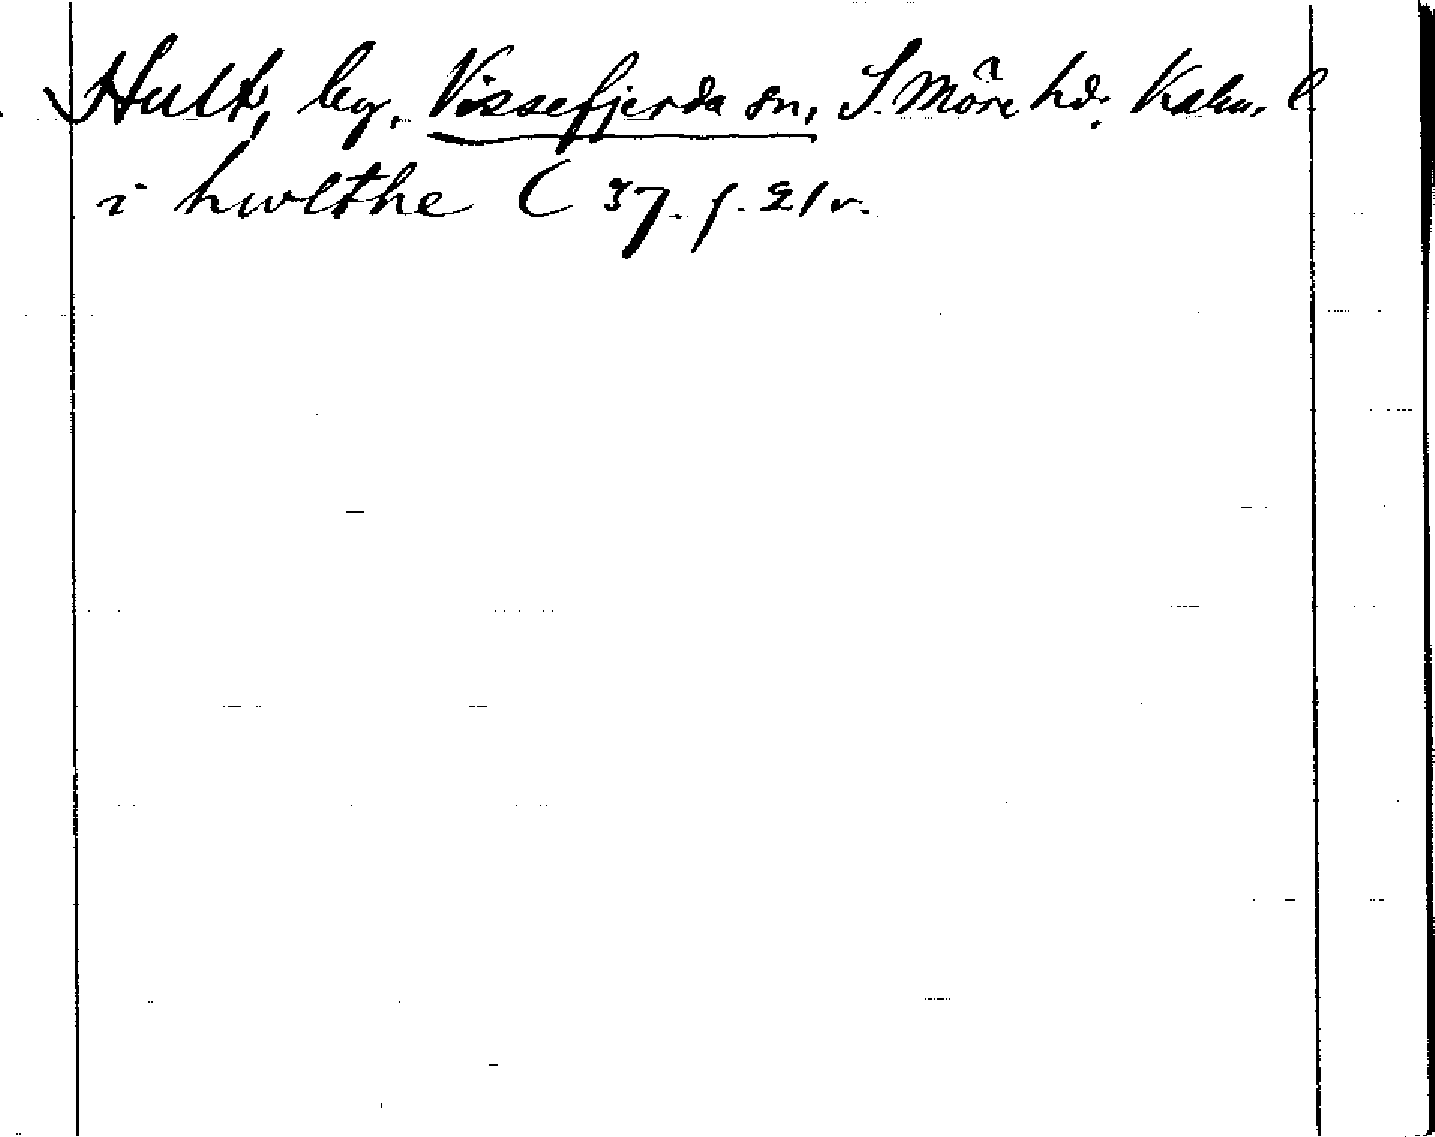 Hult, by, Vissefjerda sn, S. Möre hd. Kalm. l.
i hwlthe C 37. f. 21 v.